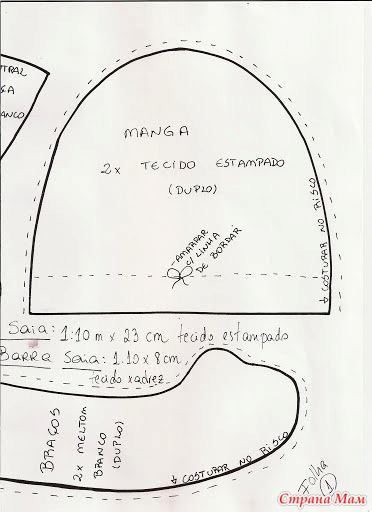 TRAL
SA
ANCO
MANGA
2x TECIDO ESTAMPADO
(DUPLO)
AMARRAR
C/ LINHA
DE BORDAR
↓ COSTURAR NO RISCO
Saia: 1:10 m x 23 cm tecido estampado
BARRA Saia: 1.10 x 8 cm
tecido xadrez
BRAÇOS
2x MELTOM
BRANCO
(DUPLO)
↓ COSTURAR NO RISCO
Folha
1
Страна Мам